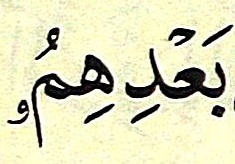 بَعْدِهِمُۥ